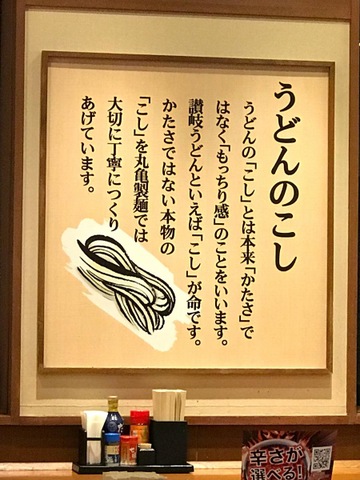 うどんのこし
うどんの「こし」とは本来「かたさ」で
はなく「もっちり感」のことをいいます。
讃岐うどんといえば「こし」が命です。
かたさではない本物の
「こし」を丸亀製麺では
大切に丁寧につくり
あげています。
辛さが
選べる!